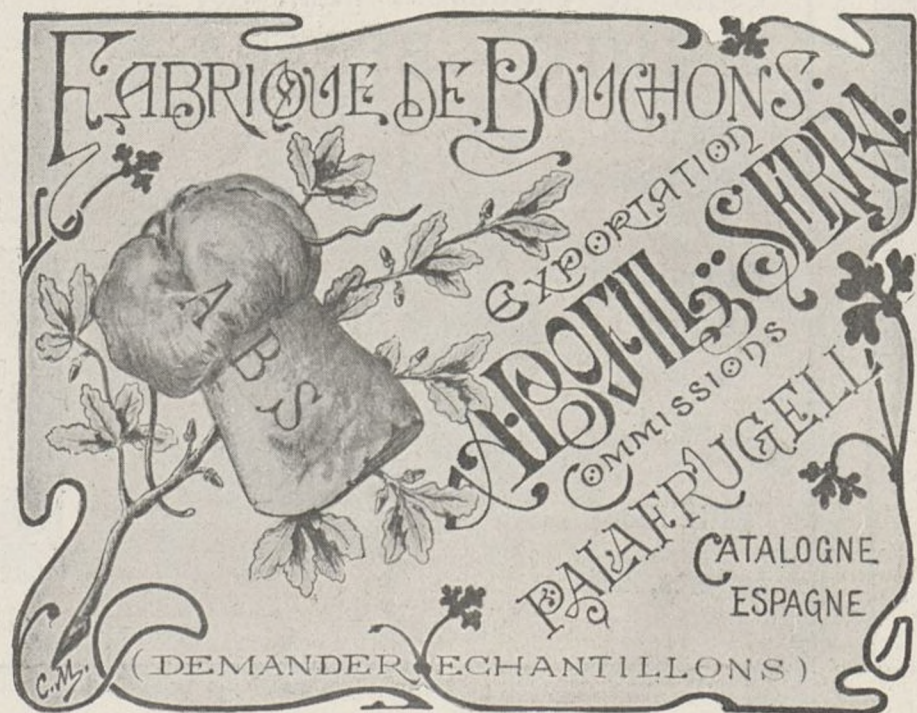 FABRIQUE DE BOUCHONS.
EXPORTATION
A. BOFILL SERRA.
COMMISSIONS
PALAFRUGELL
CATALOGNE
ESPAGNE
A
B
S
(DEMANDER ECHANTILLONS)
C.M.